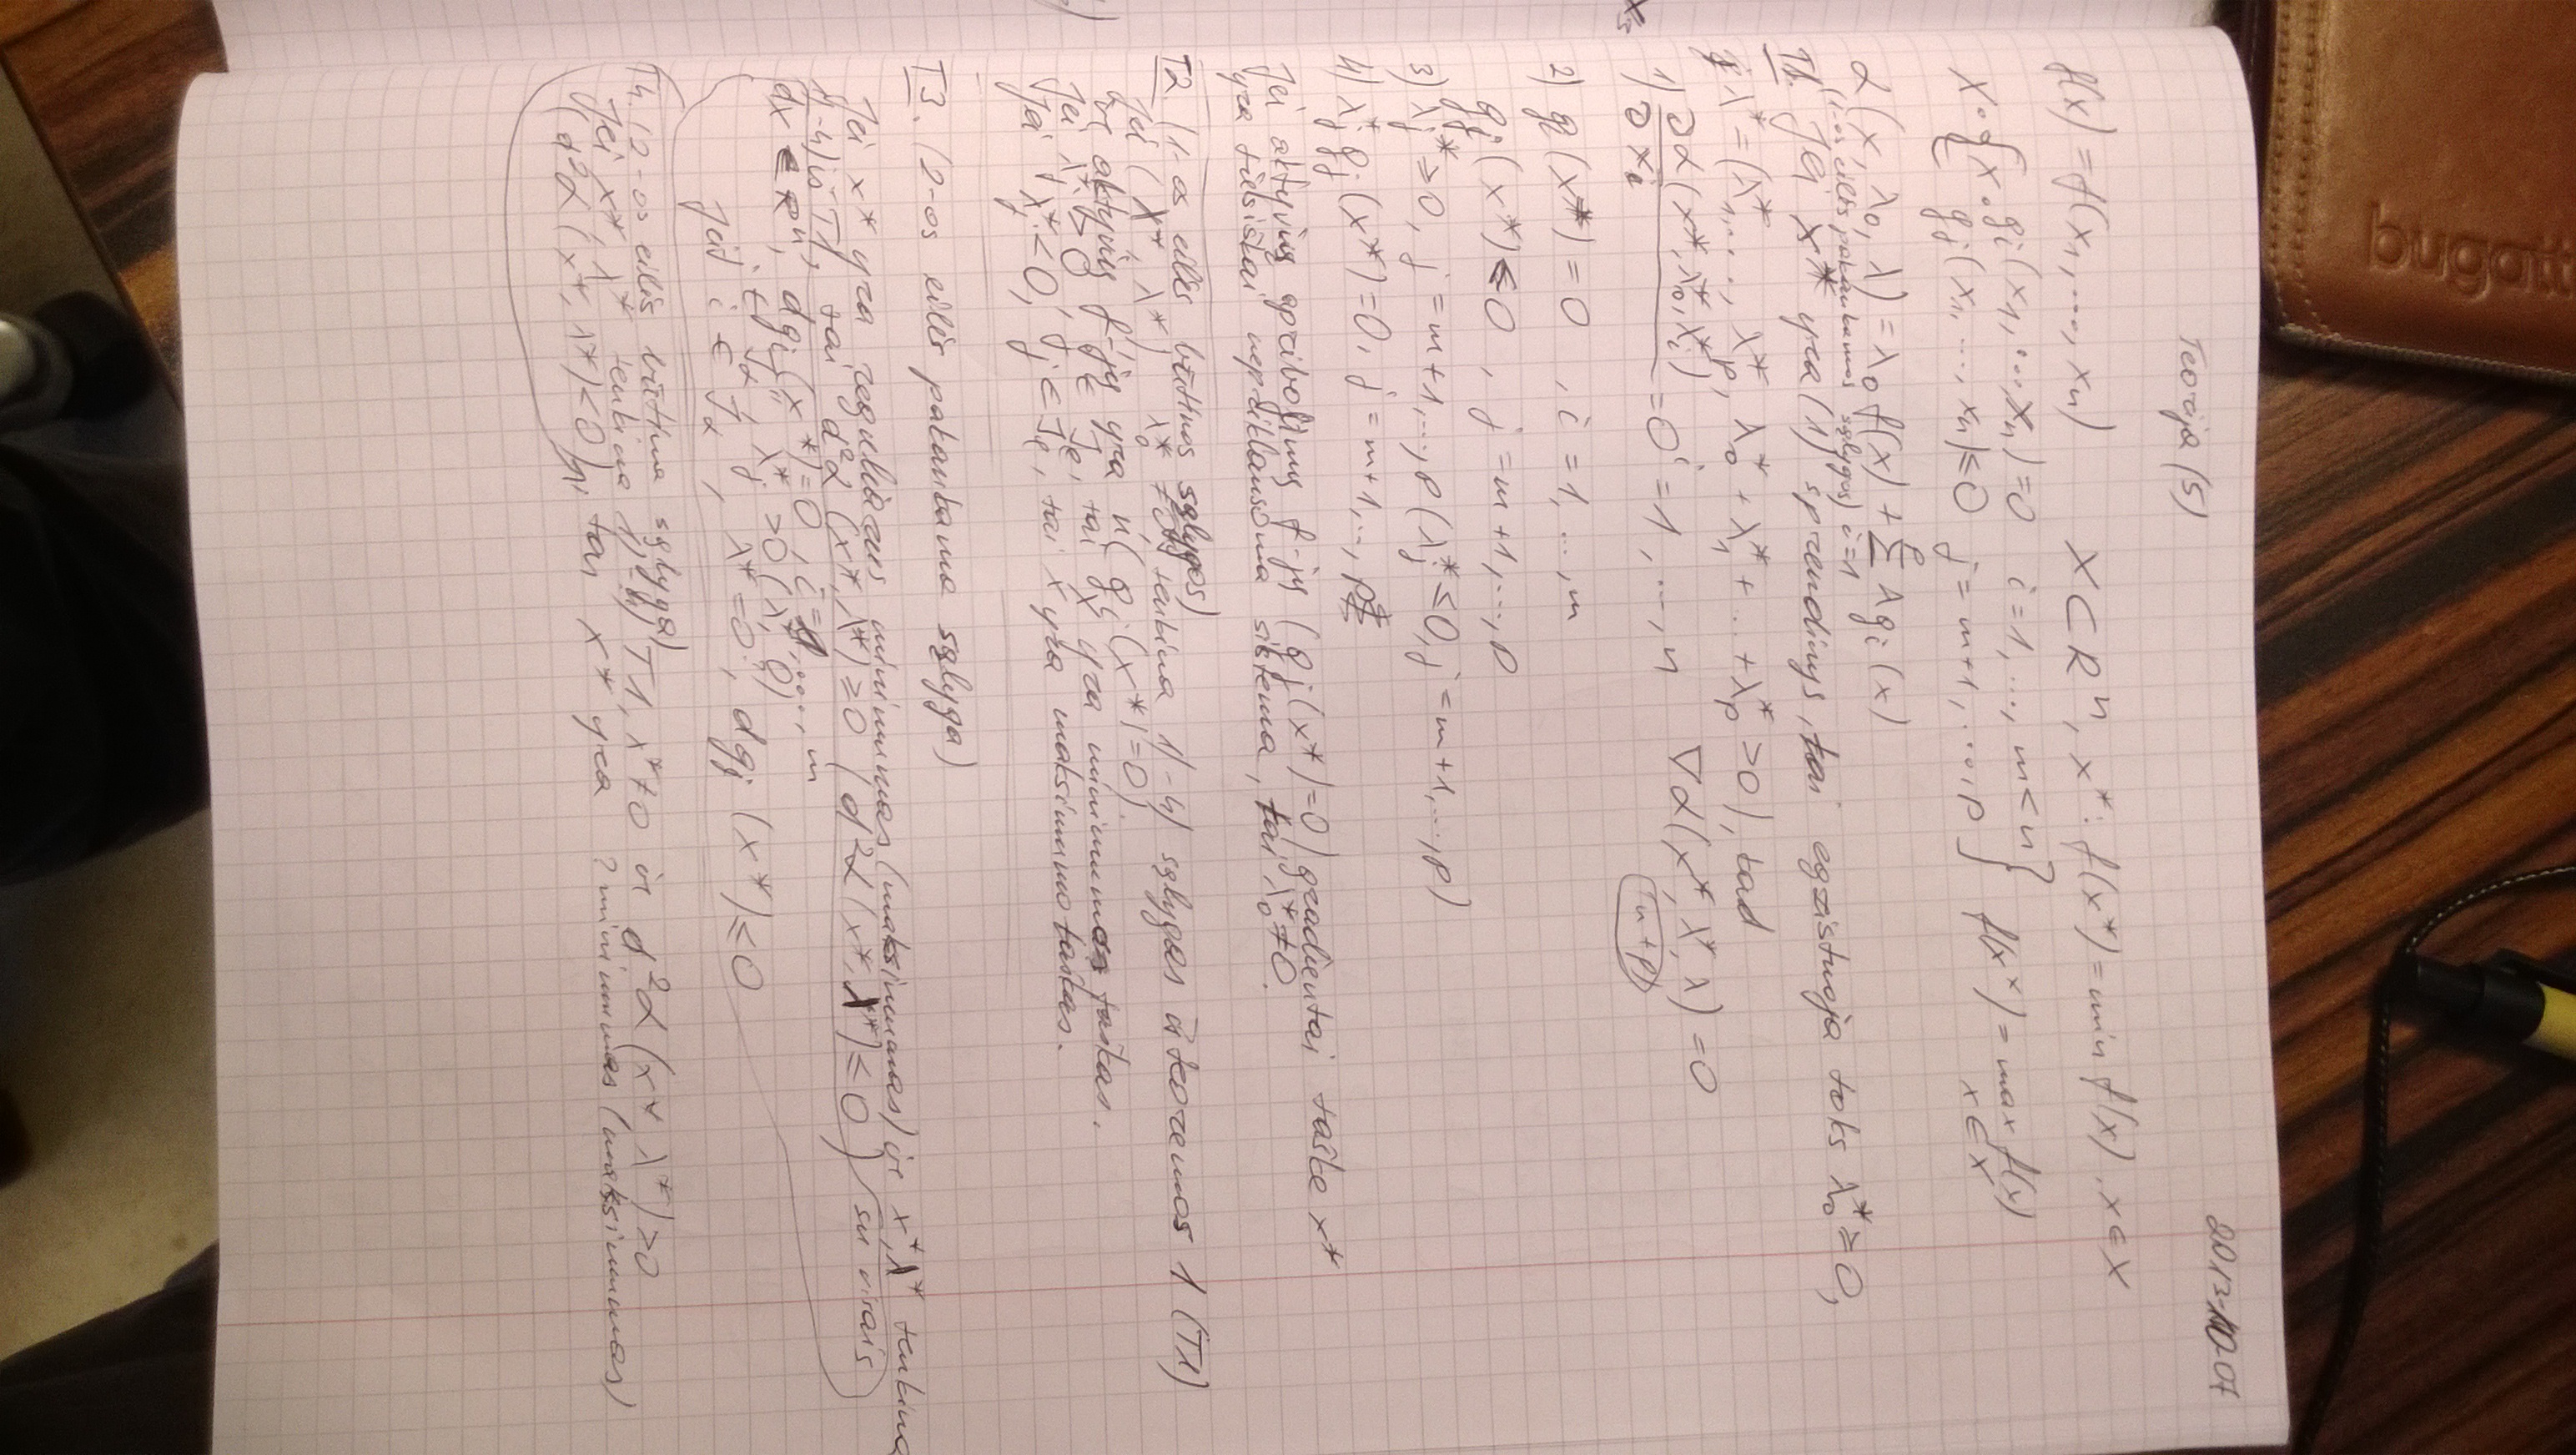 bugatti
2013-10-07
Teorija (5)
f(x) = f(x₁, ..., xₙ) X ⊂ Rⁿ, x*: f(x*) = min f(x), x ∈ X
X: { x: gᵢ(x₁, ... xₙ) = 0 i = 1, ..., m < n }
gⱼ(x₁, ..., xₙ) ≤ 0 j = m+1, ..., p f(xˣ) = max f(x)
x ∈ X
L(x, λ₀, λ) = λ₀ f(x) + Σ λ gᵢ(x)
p
i=1
(1-os eilės pakankamos sąlygos)
T1. Jei x* yra (1) sprendinys, tai egzistuoja toks λ₀* ≥ 0,
λ* = (λ₁*, ..., λₚ*, λ₀* + λ₁* + ... + λₚ* > 0), tad
1) ∂L(x*, λ₀*, λᵢ*) / ∂xᵢ = 0 i = 1, ..., n ∇L(x*, λ*, λ) = 0
(n+p)
2) gᵢ(x*) = 0 , i = 1, ..., m
gⱼ(x*) ≤ 0 , j = m+1, ..., p
3) λⱼ* ≥ 0, j = m+1, ..., p (λⱼ* ≤ 0, j = m+1, ..., p)
4) λⱼ* gⱼ(x*) = 0, j = m+1, ..., p
Jei aktyvių apribojimų f-jų (gⱼ(x*) = 0) gradientai taške x*
yra tiesiškai nepriklausoma sistema, tai λ₀* ≠ 0.
T2. (1-os eilės būtinos sąlygos)
Jei (x*, λ*), λ₀* ≠ 0, tenkina 1)-4) sąlygas iš teoremos 1 (T1)
ir aktyvių f-jų yra n (gⱼ(x*) = 0).
Jei λⱼ* > 0, j ∈ Jₑ, tai x yra minimumo taškas.
Jei λⱼ* < 0, j ∈ Jₑ, tai x yra maksimumo taškas.
T3. (2-os eilės pakankama sąlyga)
Jei x* yra reguliarus minimumas (maksimumas) ir x*, λ* tenkina
1)-4) iš T1, tai d²L(x*, λ*) ≥ 0 (d²L(x*, λ*) ≤ 0) su visais
dx ∈ Rⁿ, dgᵢ(x*) = 0, i = 1, ..., m
j ∈ Jα, λⱼ* > 0 (λ* 0)
Jei i ∈ Jα, λ* = 0, dgⱼ(x*) ≤ 0
T4. (2-os eilės būtina sąlyga)
Jei x*, λ* tenkina 1)-4) T1, λ* ≠ 0 ir d²L(x* λ*) > 0
(d²L(x*, λ*) < 0), tai x* yra ? minimumas (maksimumas)